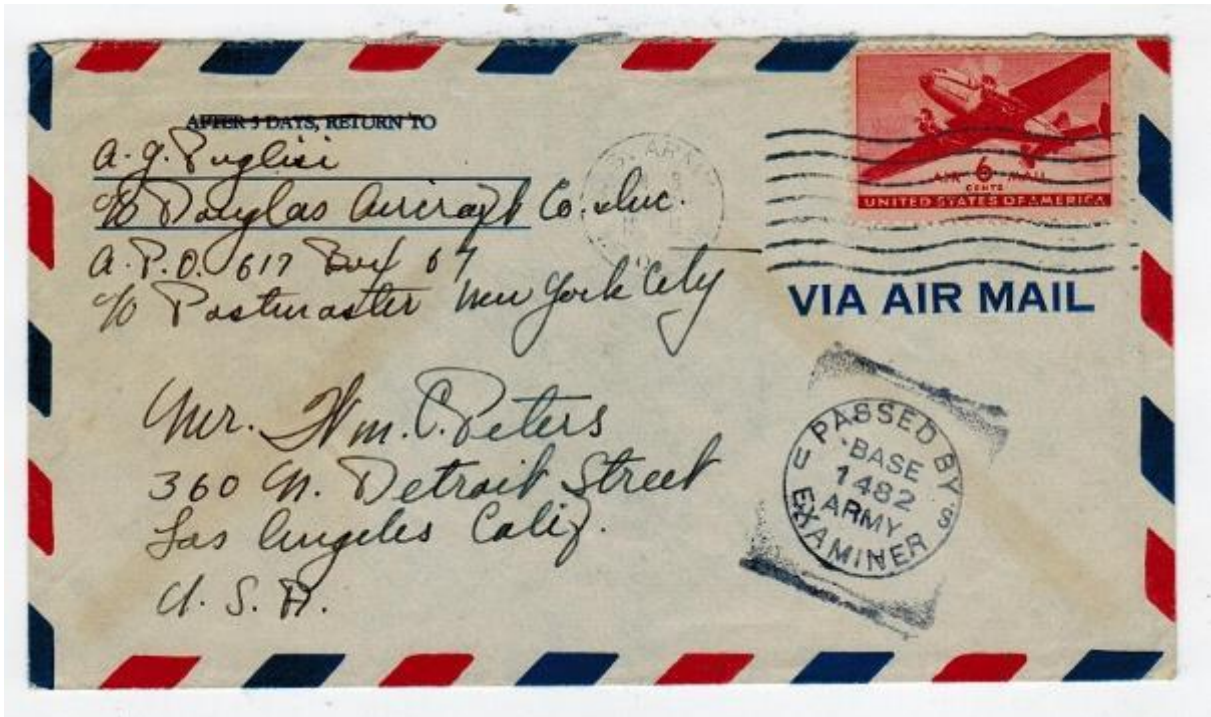 AFTER 5 DAYS, RETURN TO
A. J. Puglisi
c/o Douglas Aircraft Co. Inc.
A.P.O. 617 Box 67
c/o Postmaster New York City
AIR 6 MAIL
CENTS
UNITED STATES OF AMERICA
VIA AIR MAIL
Mr. Wm. C. Peters
360 N. Detroit Street
Los Angeles Calif.
U. S. A.
PASSED BY
U S
BASE
1482
ARMY
EXAMINER